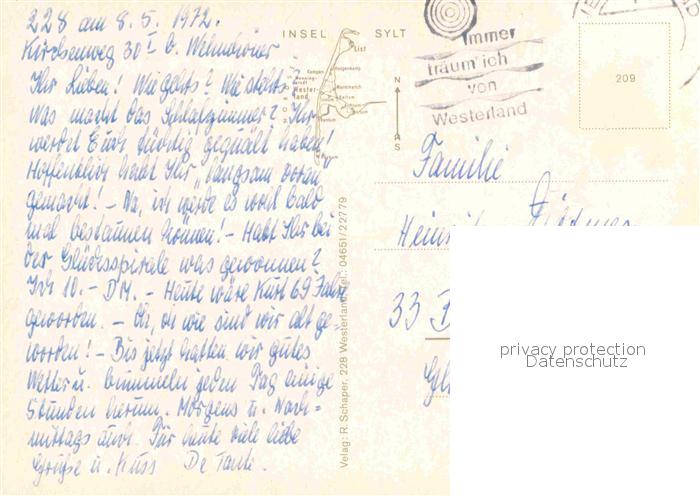 228 am 8.5.1972.
Kirchenweg 30 I b.
Ihr Lieben! Wie gehts? Wie stehts?
Was macht das Schlafzimmer? Ihr
werdet Euch tüchtig gequält haben!
Hoffentlich habt Ihr „langsam voran
gemacht! - Na, ich werde es wohl bald
mal bestaunen können! - Habt Ihr bei
der Glücksspirale was gewonnen?
Ich 10.- DM. - Heute wäre Kurt 69 Jahre
geworden. - Oh, oh wie sind wir alt ge-
worden! - Bis jetzt hatten wir gutes
Wetter u. bummeln jeden Tag einige
Stunden herum. Morgens u. Nach-
mittags auch. Für heute viele liebe
Grüße u. Kuss De Tante.
INSEL SYLT
List
Kampen
Westerland
Keitum
Hörnum
N
S
Verlag: R. Schaper, 228 Westerland, Tel.: 04651/22779
Immer
träum' ich
von
Westerland
209
Familie
33
privacy protection
Datenschutz